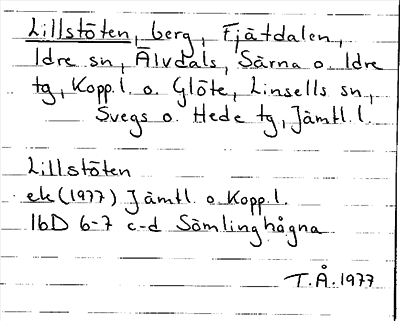 Lillstöten, berg, Fjätdalen,
Idre sn, Älvdals, Särna o. Idre
tg, Kopp.l. o. Glöte, Linsells sn,
Svegs o. Hede tg, Jämtl. l.
Lillstöten
ek (1977) Jämtl. o Kopp.l.
16D 6-7 c-d Sömlinghågna
T.Å. 1977